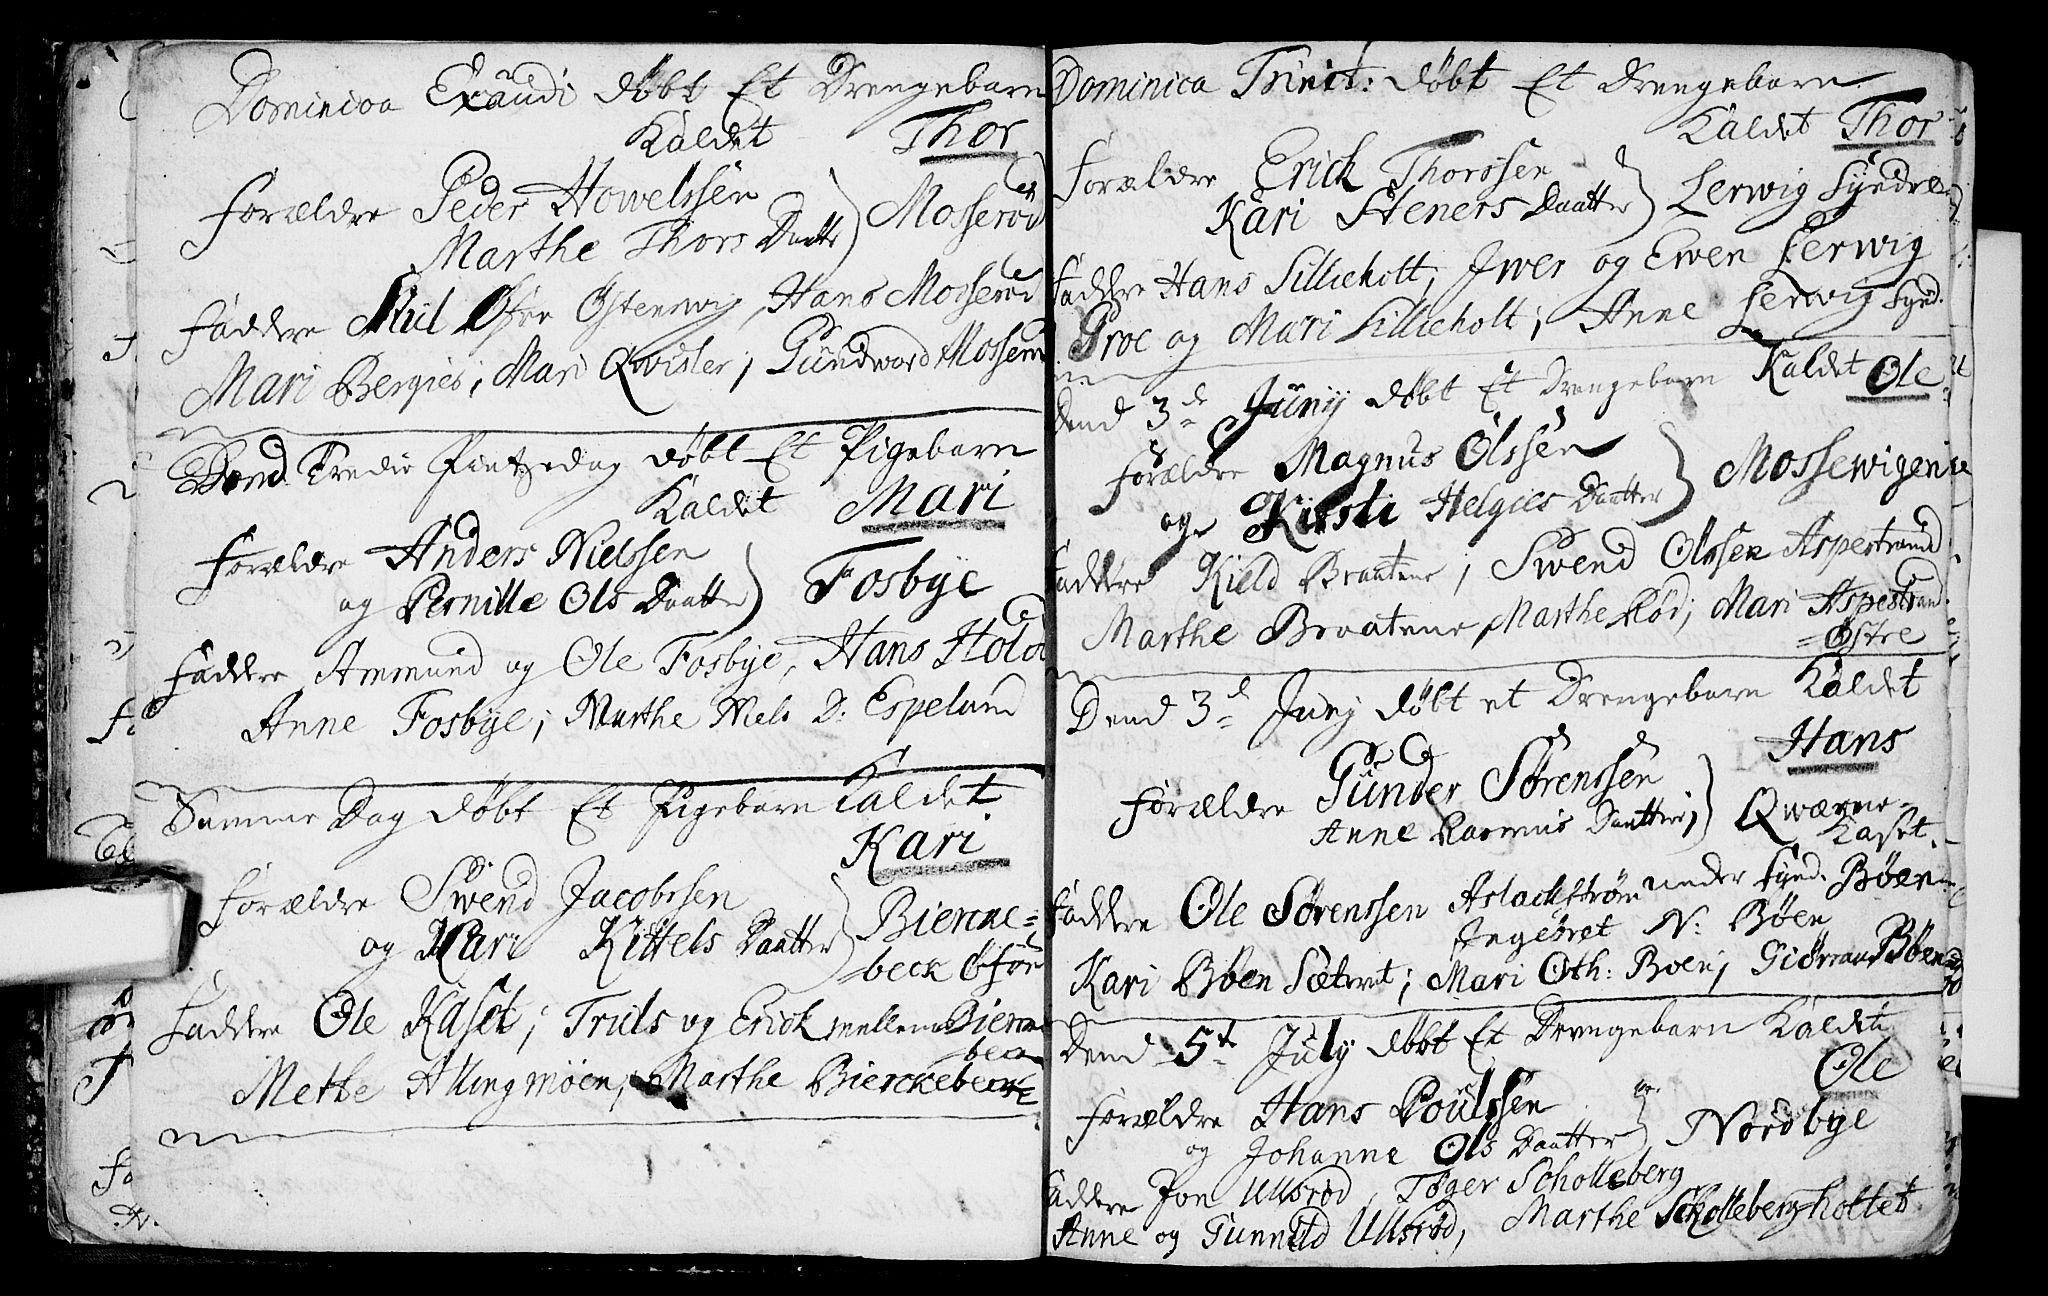 Dominica Exaudi döbt Et Drengebarn
Kaldet Thor
Forældre Peder Howelssen
Marthe Thors Daatter } Mosserød
Faddere Øfre Ostenwig, Hans Mosserød
Mari Bergies; Mari Qwisler; Gundword Mosserød
Dend Tredie Pintzedag döbt Et Pigebarn
Kaldet Mari
Forældre Anders Nielssen
og Pernille Ols Daatter } Fosbye
Faddere Ammund og Ole Fosbye, Hans Holde
Anne Fosbye; Marthe Niels D: Espelund
Samme Dag döbt Et Pigebarn Kaldet
Kari
Forældre Swend Jacobssen
og Kari Kittels Daatter } Biercke=
beck Øfre
Faddere Ole Kaset; Truls og Erick mellem Biercke
beck
Mette Allingmöen; Marthe Bierckebeck
Dominica Trinit: döbt Et Drengebarn
Kaldet Thor
Forældre Erick Thorssen
Kari Steners Daatter } Lerwig Syndre
Faddere Hans Lillieholt; Jwer og Ewen Lerwig
Groe og Mari Lillieholt; Anne Lerwig Synd.
Dend 3de Junij döbt Et Drengebarn Kaldet Ole
Forældre Magnus Olssen
og Kirsti Helgies Daatter } Mossewigen
Faddere Kield Braatene; Swend Olssen Aspestrand
Marthe Braatene, Marthe Rød; Mari Aspestrand
=Østre
Dend 3d Junj döbt et Drengebarn Kaldet
Hans
Forældre Gunder Sørenssen
Anne Rasmus Daatter; } Qwærne=
Kaset.
Faddere Ole Sørenssen Aslackstrøm under Synd. Bøen
Ingebret N: Bøen
Kari Bøen Sæteret; Mari Oth: Boen; Giøran Bøen
Dend 5te July döbt Et Drengebarn Kaldet
Ole
Forældre Hans Poulssen
og Johanne Ols Daatter } Nordbye
Faddere Jon Ullsrød, Tøger Scholleberg
Anne og Gunnild Ullsrød, Marthe Skolleberg-holtet